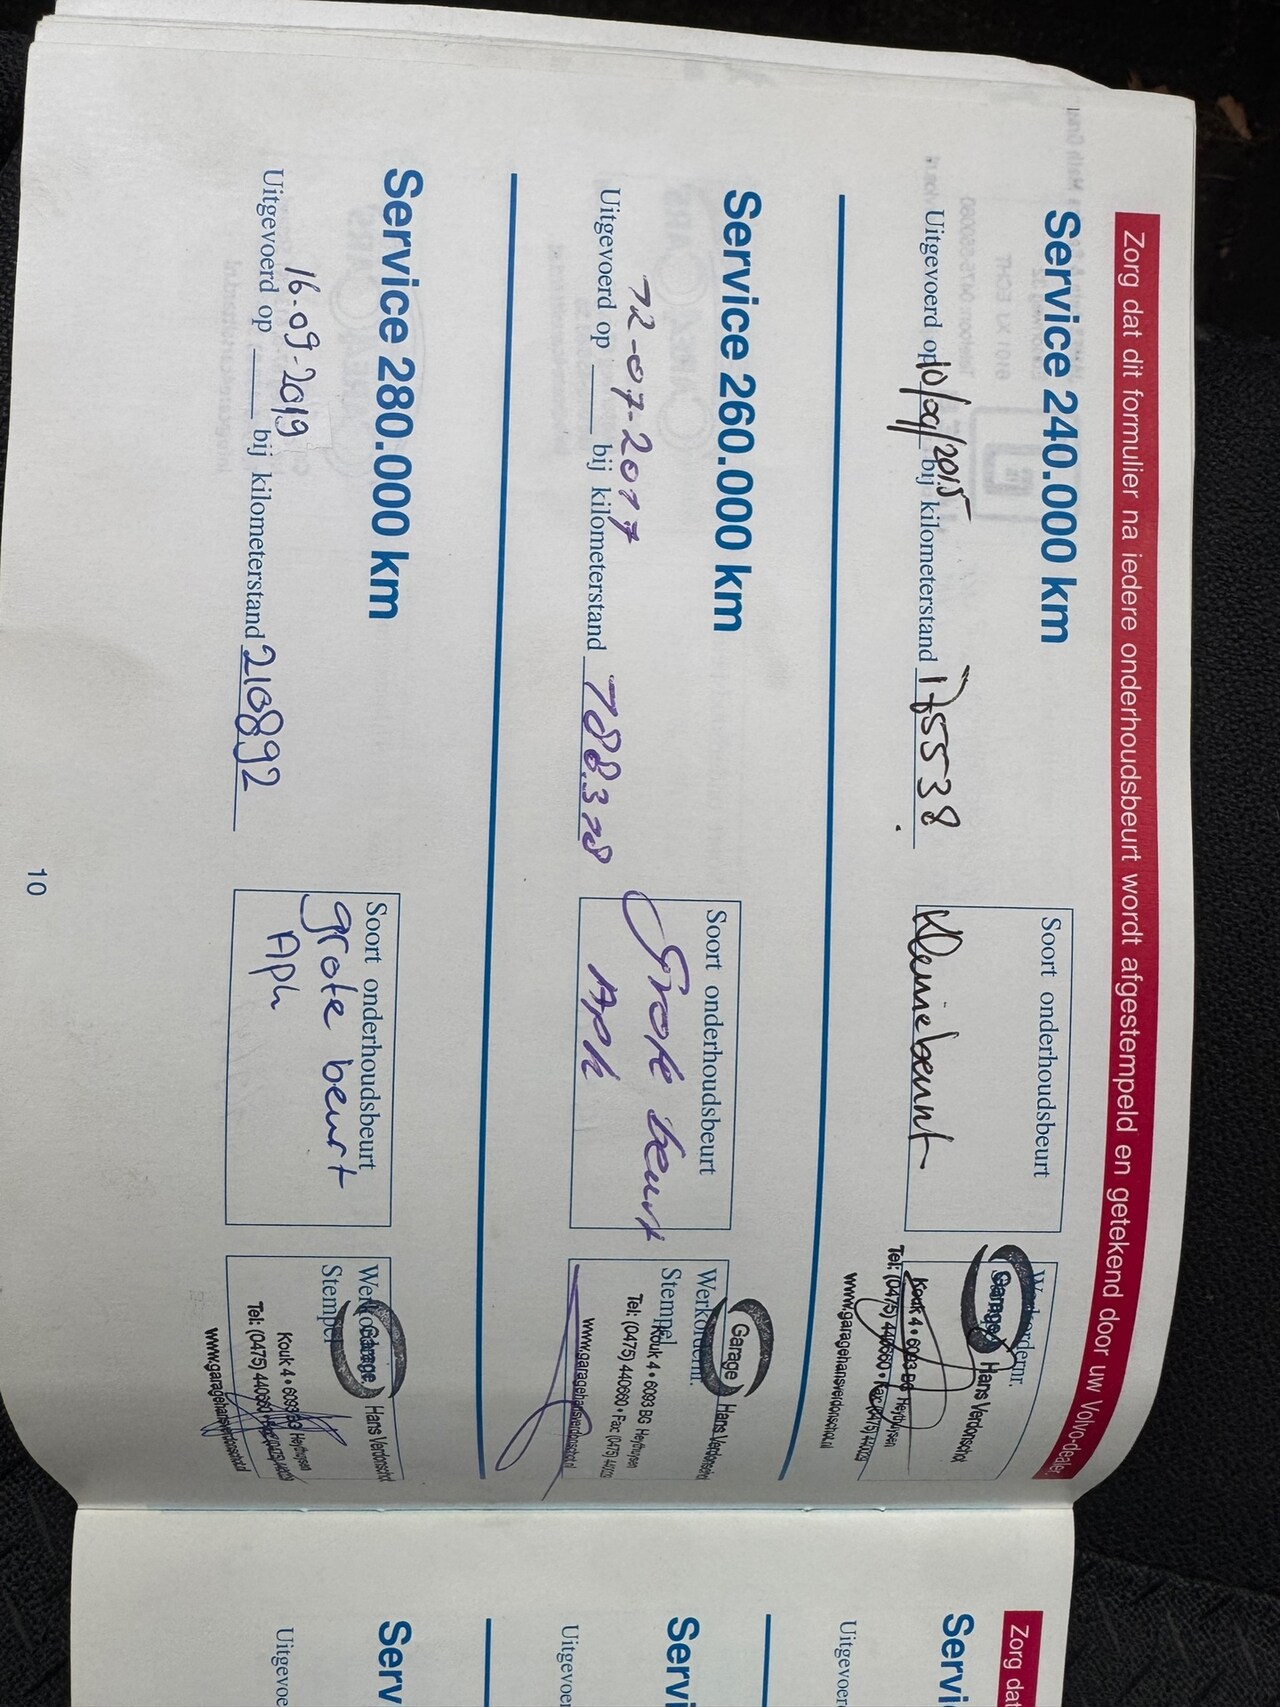 Zorg dat dit formulier na iedere onderhoudsbeurt wordt afgestempeld en getekend door uw Volvo-dealer.
Service 240.000 km
Uitgevoerd op 10/09/2015 bij kilometerstand 175538
Soort onderhoudsbeurt
Kleine beurt
Werkordernr.
Garage Hans Verdonschot
Kouk 4 • 6093 BG Heythuysen
Tel: (0475) 440660 • Fax: (0475)
www.garagehansverdonschot.nl
Service 260.000 km
12-07-2017
Uitgevoerd op ____ bij kilometerstand 188.378
Soort onderhoudsbeurt
Grote beurt
APK
Werkordernr.
Stempel
Garage Hans Verdonschot
Kouk 4 • 6093 BG Heythuysen
Tel: (0475) 440660 • Fax: (0475)
www.garagehansverdonschot.nl
Service 280.000 km
16-09-2019
Uitgevoerd op ____ bij kilometerstand 210892
Soort onderhoudsbeurt
grote beurt
Apk
Werkordernr.
Stempel
Garage Hans Verdonschot
Kouk 4 • 6093 BG Heythuysen
Tel: (0475) 440660
www.garagehansverdonschot.nl
10
Zorg dat
Servi
Uitgevoer
Servi
Uitgevoer
Serv
Uitgevoe